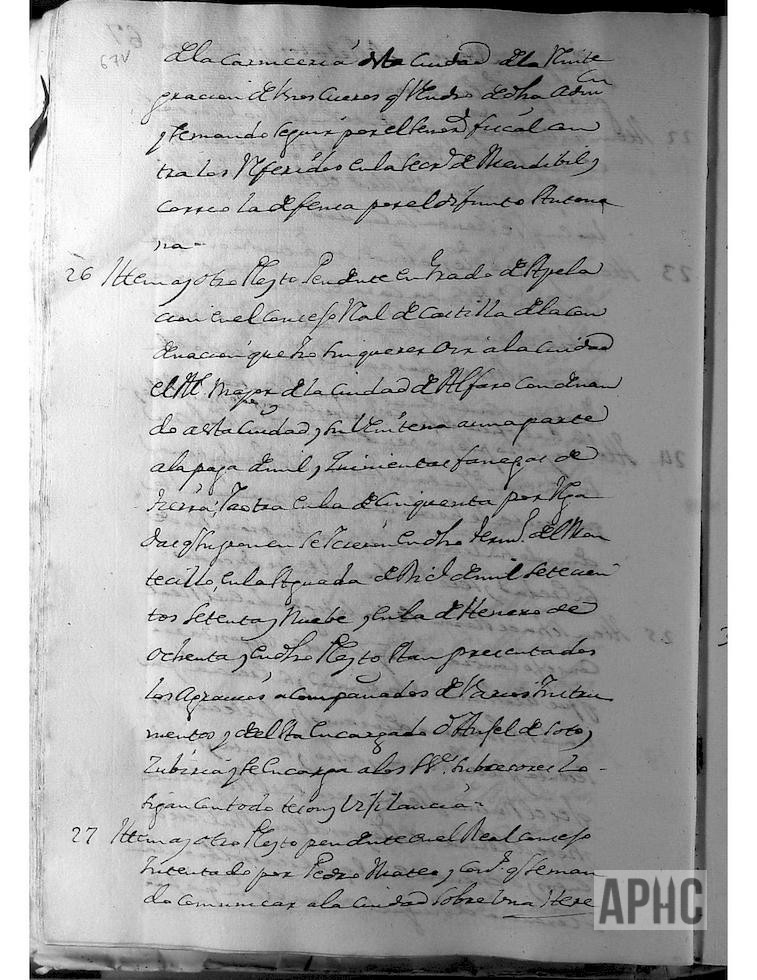 67v
de la Carniceria desta Ciudad de la Reinte
gracion de tres Cueros q.e Vendio dcha Admon
y se mando seguir por el Señor fiscal con
tra los Referidos en la Secr.a de Mendibil, y
corrio la defensa por el difunto Antona
na-
26 Ittem ay otro Pleyto Pendiente en Grado de Apela
cion en el Consejo Real de Castilla de la con
denacion que sin querer oir a la Ciudad
el Al.e major de la Ciudad de Alfaro Condenan
do a esta Ciudad, y su a una parte
a la paga de mil, y Quinientas fanegas de
tierra; Ya otra en la de Cinquenta por
das q.e suponen se icieron en dho term.o del Mon
tecillo, en la Aguada de de mil setecien
tos setenta y Nuebe y en la de Henero de
ochenta, y en dho Pleyto stan presentados
los Agravios acompañados de varios Instru
mentos, y del sta Encargado d.n Anjel de Soto, y
Zubiria y se Encarga a los SS.es subcesores lo
sigan con todo teson y Vijilancia-
27 Ittem ay otro Pleyto pendiente en el Real Consejo
Intentado por Pedro Mateo, y q.e se man
do comunicar a la Ciudad sobre una Here
APHC